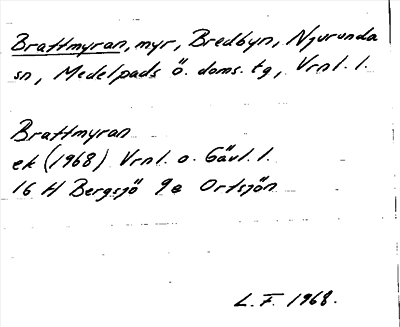 Brattmyran, myr, Bredbyn, Njurunda
sn, Medelpads ö. doms. tg, Vrnl. l.
Brattmyran
ek (1968) Vrnl. o. Gävl. l.
16 H Bergsjö 9e Ortsjön
L. F. 1968.